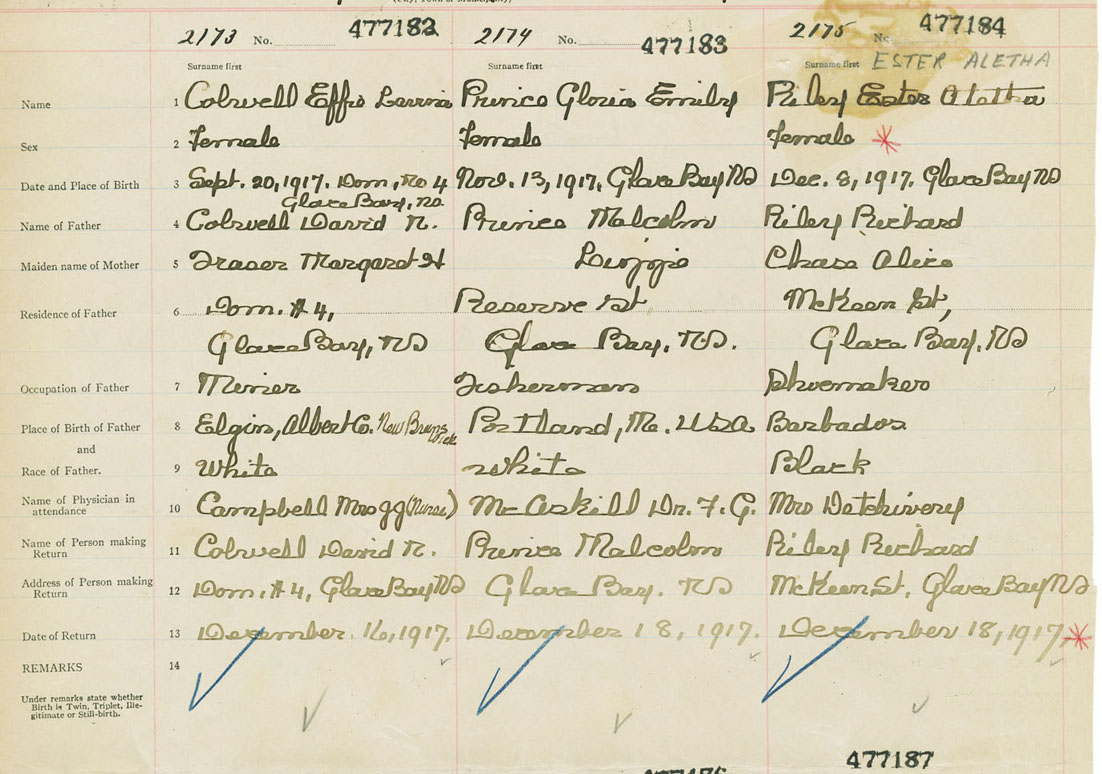 2173 No. 477182 2174 No. 477183 2175 No. 477184
Surname first Surname first Surname first ESTER ALETHA
Name 1 Colwell Effie Prince Gloria Emily Riley Ester Aletha
Sex 2 Female Female Female *
Date and Place of Birth 3 Sept. 20, 1917. Dom, No 4 Nov. 13, 1917, Glace Bay NS Dec. 8, 1917. Glace Bay NS
Glace Bay, NS.
Name of Father 4 Colwell David R. Prince Malcolm Riley Richard
Maiden name of Mother 5 Fraser Margaret H Lizzie Chase Alice
Residence of Father 6 Dom. #4, Reserve St McKeen St,
Glace Bay, NS Glace Bay, NS. Glace Bay, NS
Occupation of Father 7 Miner Fisherman Shoemaker
Place of Birth of Father 8 Elgin, Albert Co. New Brunswick Portland, Me. USA Barbados
and
Race of Father. 9 White White Black
Name of Physician in
attendance 10 Campbell Mrs (Nurse) McAskill Dr. F. G. Mrs
Name of Person making
Return 11 Colwell David R. Prince Malcolm Riley Richard
Address of Person making
Return 12 Dom. #4, Glace Bay NS Glace Bay. NS McKeen St, Glace Bay NS
Date of Return 13 December 16, 1917. December 18, 1917. December 18, 1917. *
REMARKS 14
Under remarks state whether
Birth is Twin, Triplet, Ille-
gitimate or Still-birth.
477187